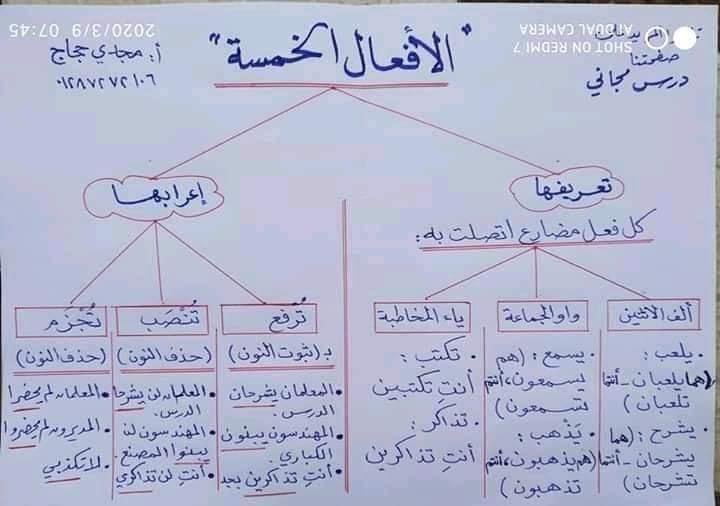 "الأفعال الخمسة"
صفحتنا
درس مجاني
أ: مجدي حجاج
٠١٢٨٧٢٧٢١٠٦
2020/3/9 07:45
SHOT ON REDMI 7
AI DUAL CAMERA
تعريفها
كل فعل مضارع اتصلت به:
ألف الاثنين
يلعب:
(هما يلعبان - أنتما
تلعبان)
يشرح: (هما
يشرحان - أنتما
تشرحان)
واو الجماعة
يسمع: (هم
يسمعون، أنتم
تسمعون)
يَذْهب:
(هم يذهبون، أنتم
تذهبون)
ياء المخاطبة
تكتب:
أنتِ تكتبين
تذاكر:
أنتِ تذاكرين
إعرابها
تُرفع
بـ (ثبوت النون)
المعلمان يشرحان
الدرس.
المهندسون يبنون
الكباري.
أنتِ تذاكرين بجد
تُنْصَب
(حذف النون)
المعلمان لن يشرحا
الدرس.
المهندسون لن
يبنوا المصنع.
أنتِ لن تذاكري
تُجْزَم
(حذف النون)
المعلمان لم يحضرا
المديرون لم يحضروا
لا تكذبي